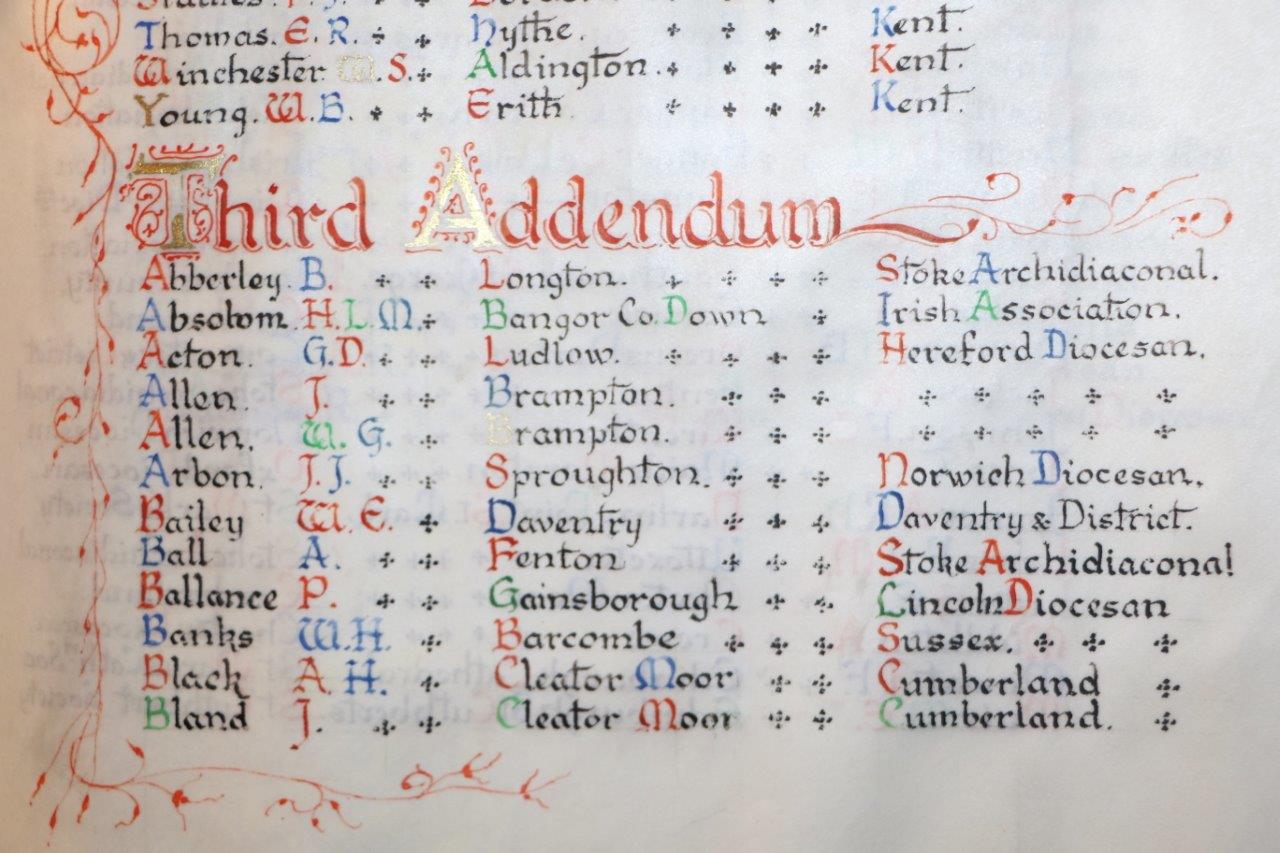 Thomas. E. R. Hythe. Kent.
Winchester W. S. Aldington. Kent.
Young. W. B. Erith. Kent.
Third Addendum
Abberley. B. Longton. Stoke Archidiaconal.
Absolom. H. L. M. Bangor Co. Down Irish Association.
Acton. G. D. Ludlow. Hereford Diocesan.
Allen. J. Brampton.
Allen. W. G. Brampton.
Arbon. J. J. Sproughton. Norwich Diocesan.
Bailey W. E. Daventry Daventry & District.
Ball A. Fenton Stoke Archidiaconal
Ballance P. Gainsborough Lincoln Diocesan
Banks W. H. Barcombe Sussex.
Black A. H. Cleator Moor Cumberland
Bland J. Cleator Moor Cumberland.